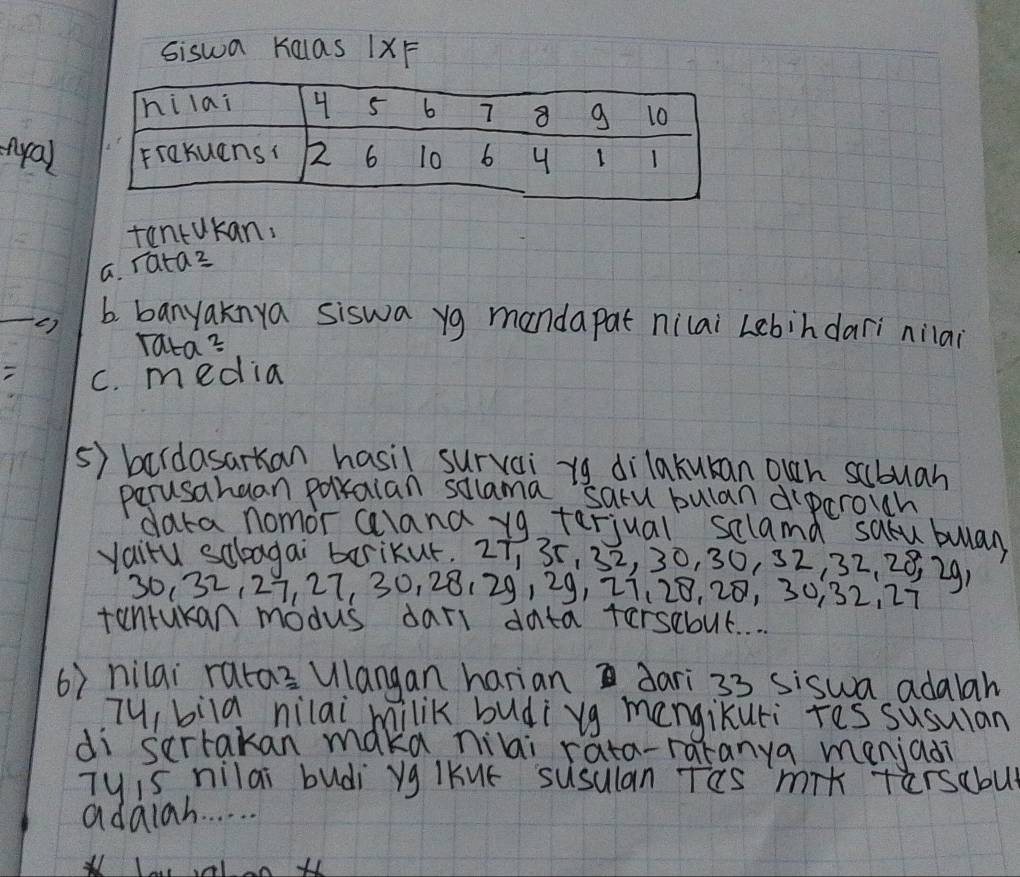 siswa kelas IXF
nilai 4 5 6 7 8 9 10
nya)
Frekuensi 2 6 10 6 4 1 1
tentukan:
a. rata2
b. banyaknya siswa yg mendapat nilai Lebih dari nilai
rata2
=
c. media
5) berdasarkan hasil survei yg dilakukan oleh sebuah
perusahaan pakaian selama satu bulan diperoleh
data nomor celana yg terjual selama satu bulan,
yaitu sebagai berikut. 27, 35, 32, 30, 30, 32, 32, 28, 29,
30, 32, 27, 27, 30, 28, 29, 29, 27, 28, 28, 30, 32, 27
tentukan modus dari data tersebut....
6) nilai rata2 ulangan harian dari 33 siswa adalah
74, bila nilai milik budi yg mengikuti tes susulan
di sertakan maka nilai rata-ratanya menjadi
74,5 nilai budi yg ikut susulan Tes mtk tersebut
adalah......